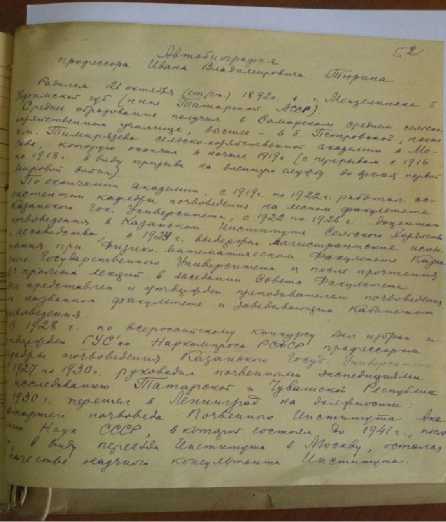 52
Автобиография
профессора Ивана Владимировича Тюрина
Родился 21 октября (ст. ст.) 1892 г. в г. Мензелинске б.
Уфимской губ (ныне Татарской АССР)
Среднее образование получил в Самарском среднем сельско-
хозяйственном училище, высшее - в б. Петровской, ныне
им. Тимирязева сельско-хозяйственной академии в Мо-
скве, которую окончил в начале 1919 г (с перерывом с 1916
по 1918 в виду призыва на военную службу во время первой
мировой войны)
По окончании академии с 1919 г. по 1922 г. работал ас-
систентом кафедры почвоведения на лесном факультете
Казанского Гос. Университета, с 1922 по 1928 г. доцентом
почвоведения в Казанском Институте Сельского Хозяйства
и лесоводства. в выдержал магистрантские испы-
тания при Физико-математическом факультете Казан
ского Государственного Университета и после прочтения
пробных лекций в заседании Совета Факультета
представлен и утвержден преподавателем почвоведения
на названном факультете и заведывающим Кабинетом
почвоведения
В 1928 г. по всероссийскому конкурсу был избран и
утвержден ГУС'ом Наркомпроса РСФСР профессором
кафедры почвоведения Казанского Госуд. Университета
1927 по 1930 г. руководил почвенными экспедициями
исследованию Татарской и Чувашской Республик
1930 г. перешел в Ленинград на должность
старшего почвоведа Почвенного Института Ака
демии Наук СССР, в которой состоял до 1941 г., после
в виду переезда Института в Москву, остался
качестве научного консультанта Института.